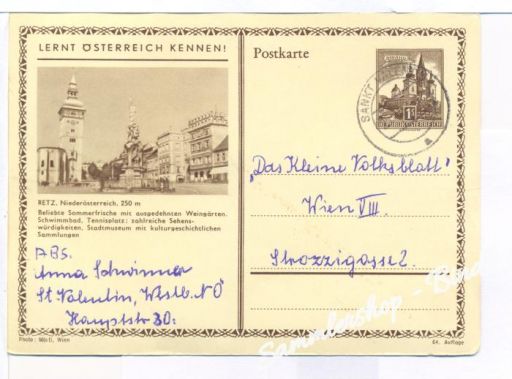 LERNT ÖSTERREICH KENNEN!
Postkarte
REPUBLIK ÖSTERREICH
SANKT
a
RETZ, Niederösterreich, 250 m
Beliebte Sommerfrische mit ausgedehnten Weingärten.
Schwimmbad, Tennisplatz; zahlreiche Sehens-
würdigkeiten, Stadtmuseum mit kulturgeschichtlichen
Sammlungen
"Das Kleine Volksblatt"
Wien VIII.
Strozzigasse 2.
ABS.
Anna Schwinner
St Valentin, Westb. NÖ
Hauptstr 30.
Photo: Wien
64. Auflage
Sammlershop -